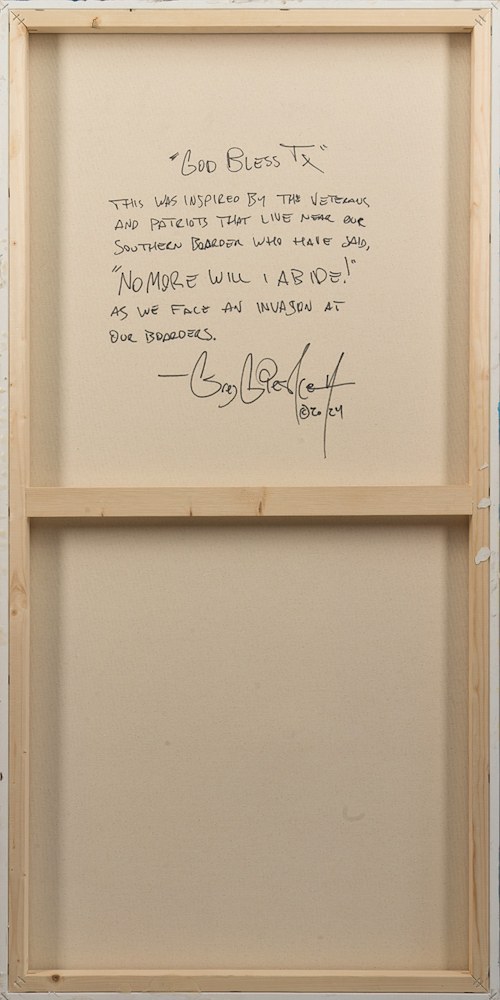 "GOD BLESS TX"
THIS WAS INSPIRED BY THE VETERANS
AND PATRIOTS THAT LIVE NEAR OUR
SOUTHERN BOARDER WHO HAVE SAID,
"NO MORE WILL I ABIDE!"
AS WE FACE AN INVASON AT
OUR BOARDERS.
—Greg
©2024